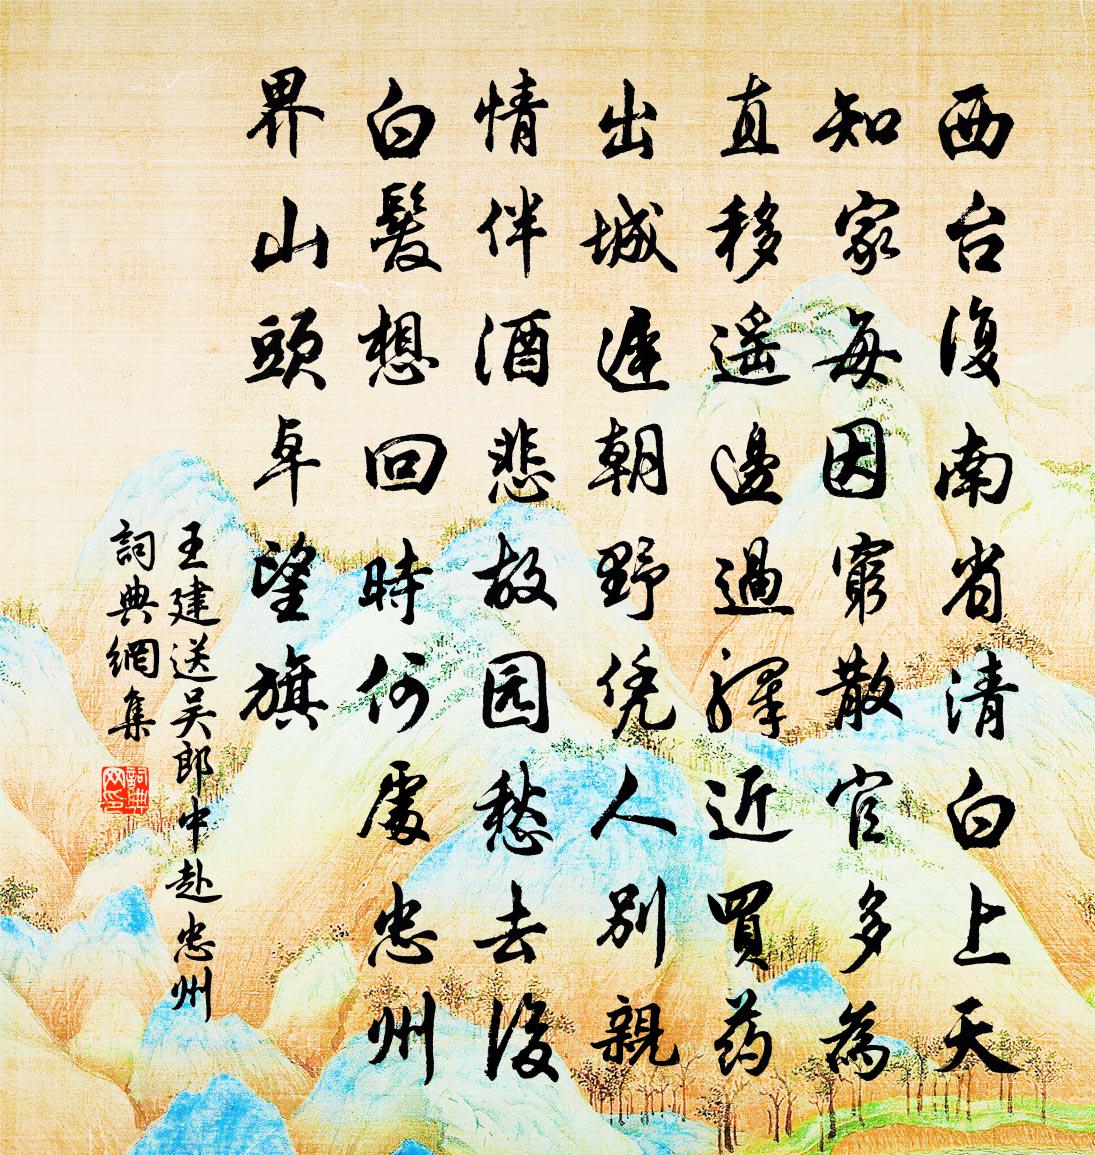 西台復南省清白上天
知家每因窮散官多為
直移遥邊過驛近買药
出城遲朝野凭人别親
情伴酒悲故园愁去後
白髮想回時何處忠州
界山頭卓望旗
王建送吴郎中赴忠州
詞典網集
詞典网印